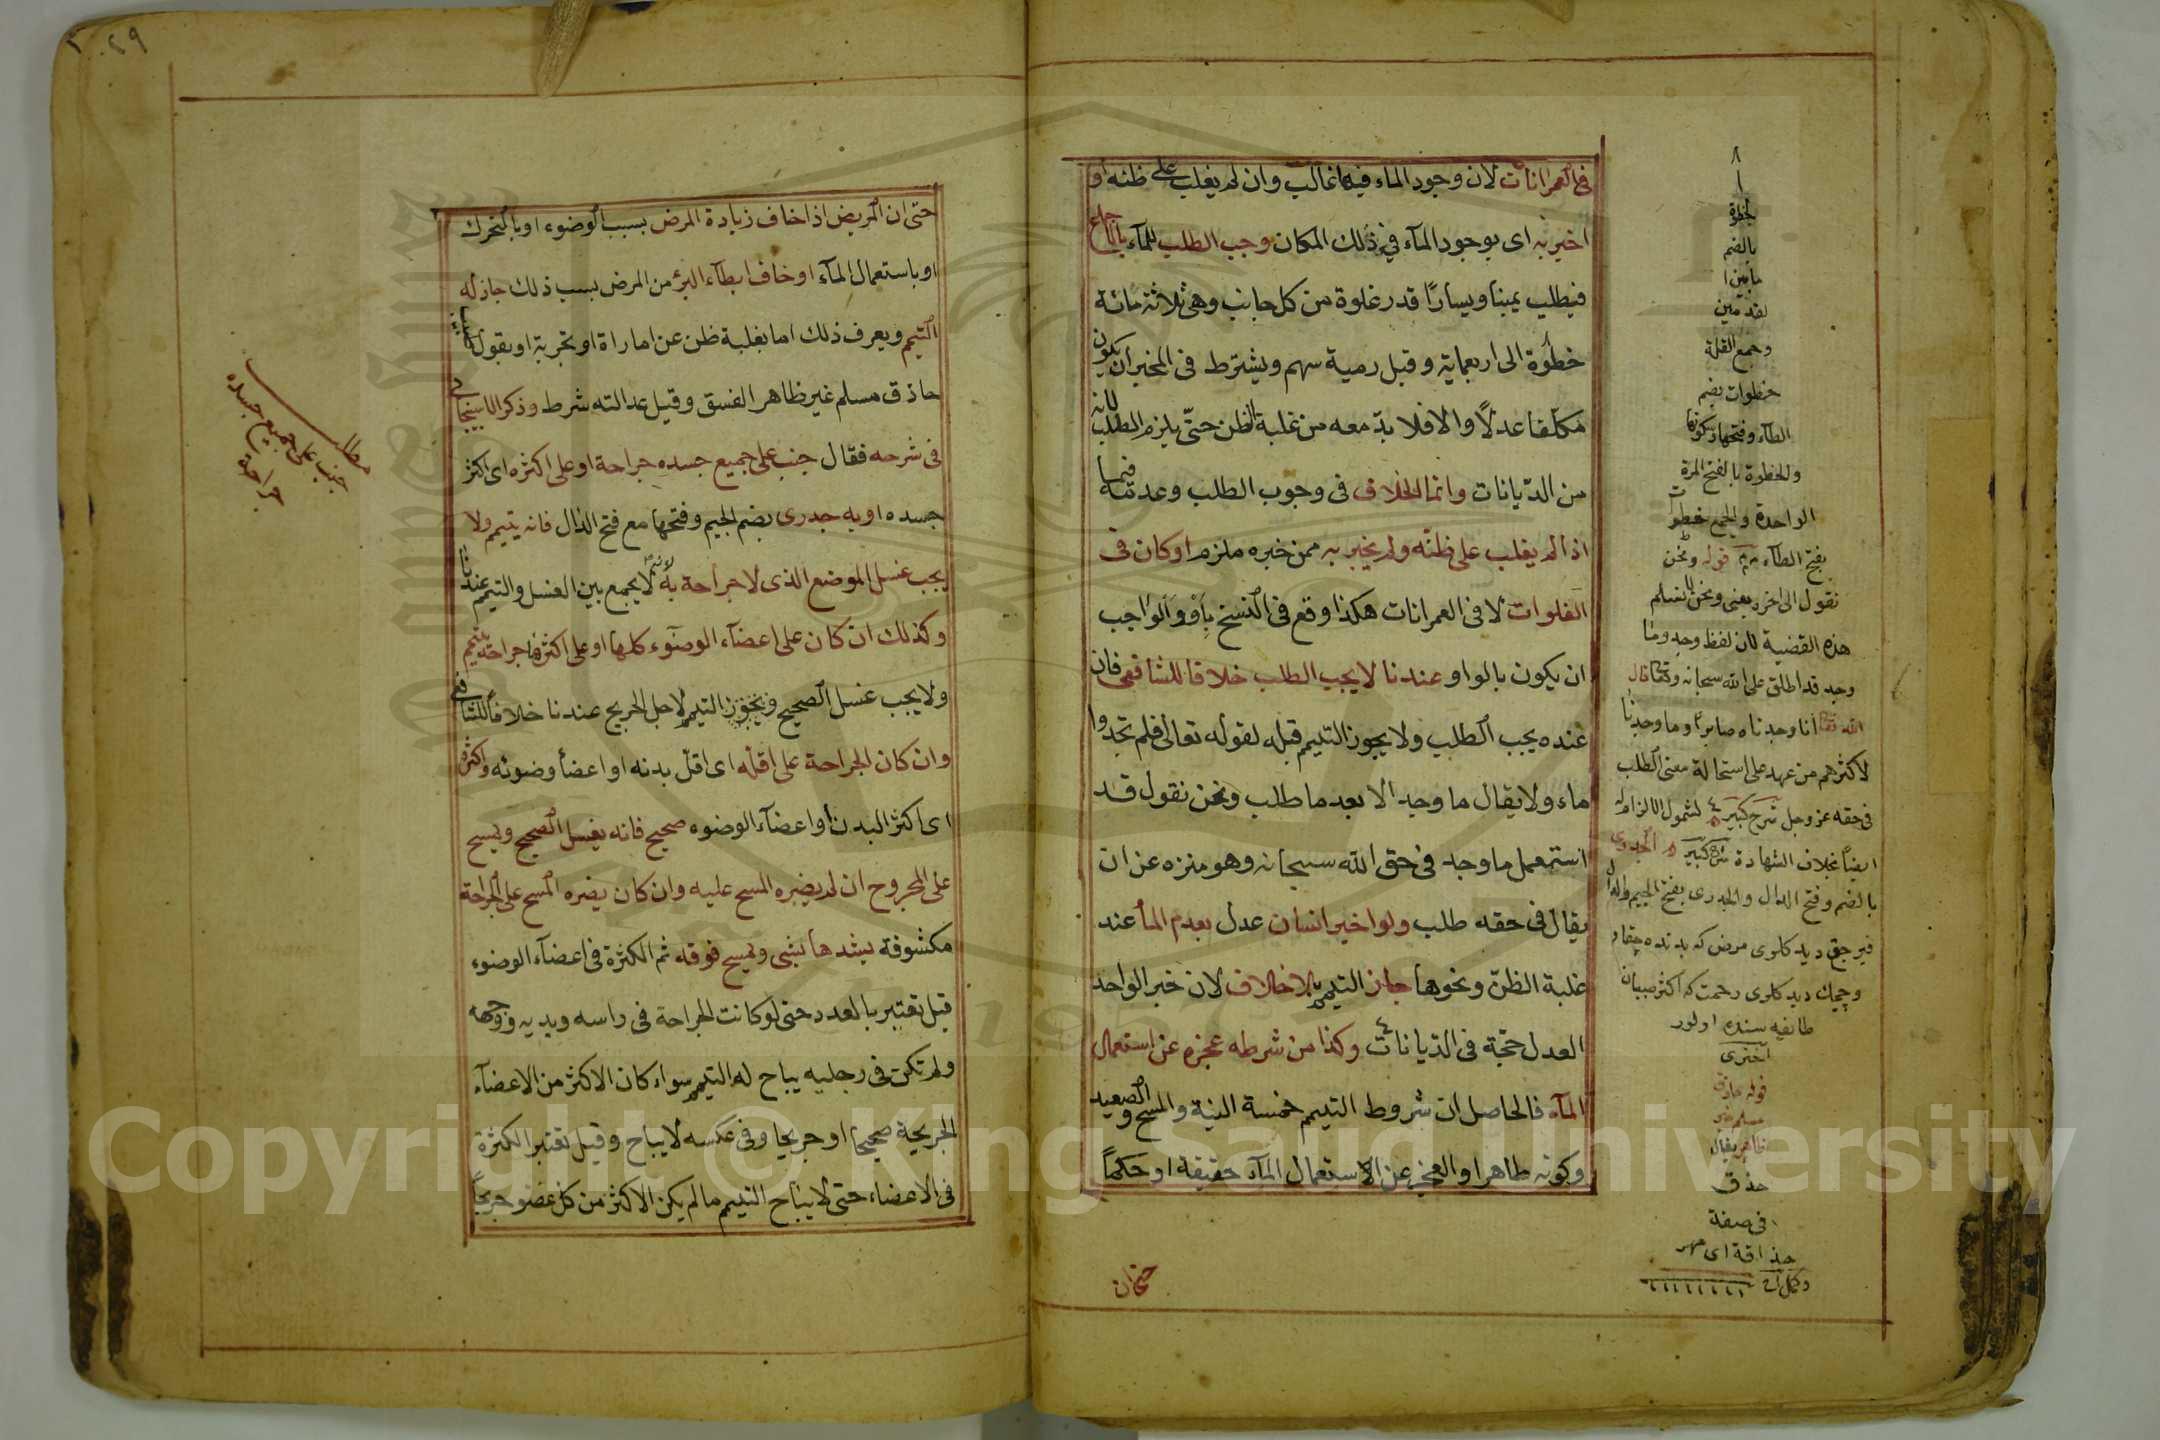 في العمرانات لان وجود الماء فيها غالب وان لم يغلب على ظنه او
اخبر به اى بوجود المآء في ذلك المكان وجب الطلب للمآء بالاجماع
فيطلب يمينا ويسارًا قدر غلوة من كل جانب وهى ثلاثة مائة
خطوة الى اربعماية وقيل رمية سهم ويشترط فى المخبر ان يكون
مكلفا عدلًا والا فلا بدّ معه من غلبة الظن حتّى يلزم الطلب لانه
من الدّيانات وانما الخلاف فى وجوب الطلب وعدمه فيما
اذا لم يغلب على ظنه ولم يخبر به ممن خبره ملزم او كان فى
الفلوات لا فى العمرانات هكذا وقع فى النسخ بأَوْ والواجب
ان يكون بالواو عندنا لا يجب الطلب خلافا للشافعى فان
عنده يجب الطلب ولا يجوز التيمم قبله لقوله تعالى فلم تجدوا
ماء ولا يقال ما وجد الا بعد ما طلب ونحن نقول قد
استعمل ما وجد فى حق الله سبحانه وهو منزه عن ان
يقال فى حقه طلب ولو اخبر انسان عدل بعدم المأ عند
غلبة الظنّ ونحوها جاز التيمم بلا خلاف لان خبر الواحد
العدل حجّة فى الدّيانات وكذا من شرطه عجزه عن استعمال
المآء فالحاصل ان شروط التيمم خمسة النية والمسح والصعيد
وكونه طاهرا والعجز عن الاستعمال المآء حقيقة او حكماً
خطوة
بالضم
ما بين ا
لقدمين
وجمع القلة
خطوات بضم
الطآء وفتحها وسكونها
والخطوة بالفتح المرة
الواحدة والجمع خطوات
بفتح الطآء قوله ونحن
نقول الى اخره يعنى ونحن لا نسلم
هذه القضية لان لفظ وجد وما
وجد قد اطلق على الله سبحانه وتعالى قال
الله تعا انا وجدناه صابرًا وما وجدنا
لاكثرهم من عهد على استحالة معنى الطلب
فى حقه عز وجل شرح كبير لشمول الالزام له
ايضًا بخلاف الشهادة شرح كبير الجدرى
بالضم وفتح الدال والجدرى بفتح الجيم والدال
اولور
اختری
قوله حاذق
مسلم غير
ظاهر يقال
حذق
فى صنعة
حذاقة اى مهر
حتى ان المريض اذا خاف زيادة المرض بسبب الوضوء او بالتحرك
او باستعمال المآء او خاف ابطآء البرؤ من المرض بسبب ذلك جاز له
التيمم ويعرف ذلك اما بغلبة ظن عن اماراة او تجربة او بقول طبيب
حاذق مسلم غير ظاهر الفسق وقيل عدالته شرط وذكر الاسبيجابى
فى شرحه فقال جنب على جميع جسده جراحة او على اكثره اى اكثر
جسده او به جدرى بضم الجيم وفتحها مع فتح الدال فانه يتيمم ولا
يجب غسل الموضع الذى لا جراحة به لانه لا يجمع بين الغسل والتيمم عندنا
وكذلك ان كان على اعضآء الوضوء كلها او على اكثرها جراحة يتيمم
ولا يجب غسل الصحيح ويجوز التيمم لاجل الجريح عندنا خلافا للشافعى
وان كان الجراحة على اقله اى اقلّ بدنه او اعضأ وضوئه واكثره
اى اكثر البدن او اعضآء الوضوء صحيح فانه يغسل الصحيح ويمسح
على المجروح ان لم يضره المسح عليه وان كان يضره المسح على الجراحة
مكشوفة يشدها بشى ويمسح فوقه ثم الكثرة فى اعضآء الوضوء
قيل تعتبر بالعدد حتى لو كانت الجراحة فى راسه ويديه ووجهه
ولم تكن فى رجليه يباح له التيمم سواء كان الاكثر من الاعضآء
الجريحة صحيحا او جريحا وفى عكسه لا يباح وقيل تعتبر الكثرة
فى الاعضاء حتى لا يباح التيمم ما لم يكن الاكثر من كل عضو جريحاً
مطلب
جنب على جميع جسده
جراحة
Copyright © King Saud University